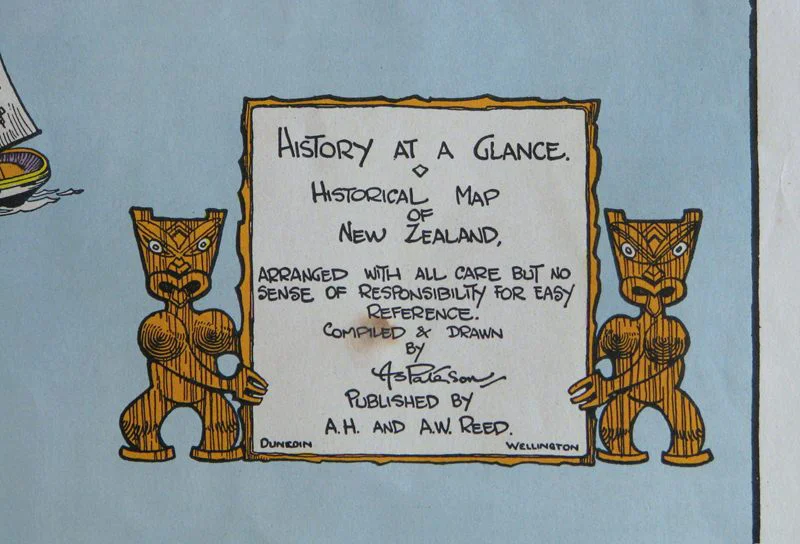 HISTORY AT A GLANCE.
HISTORICAL MAP
OF
NEW ZEALAND,
ARRANGED WITH ALL CARE BUT NO
SENSE OF RESPONSIBILITY FOR EASY
REFERENCE.
COMPILED & DRAWN
BY
AS Paterson
PUBLISHED BY
A.H. AND A.W. REED.
DUNEDIN WELLINGTON